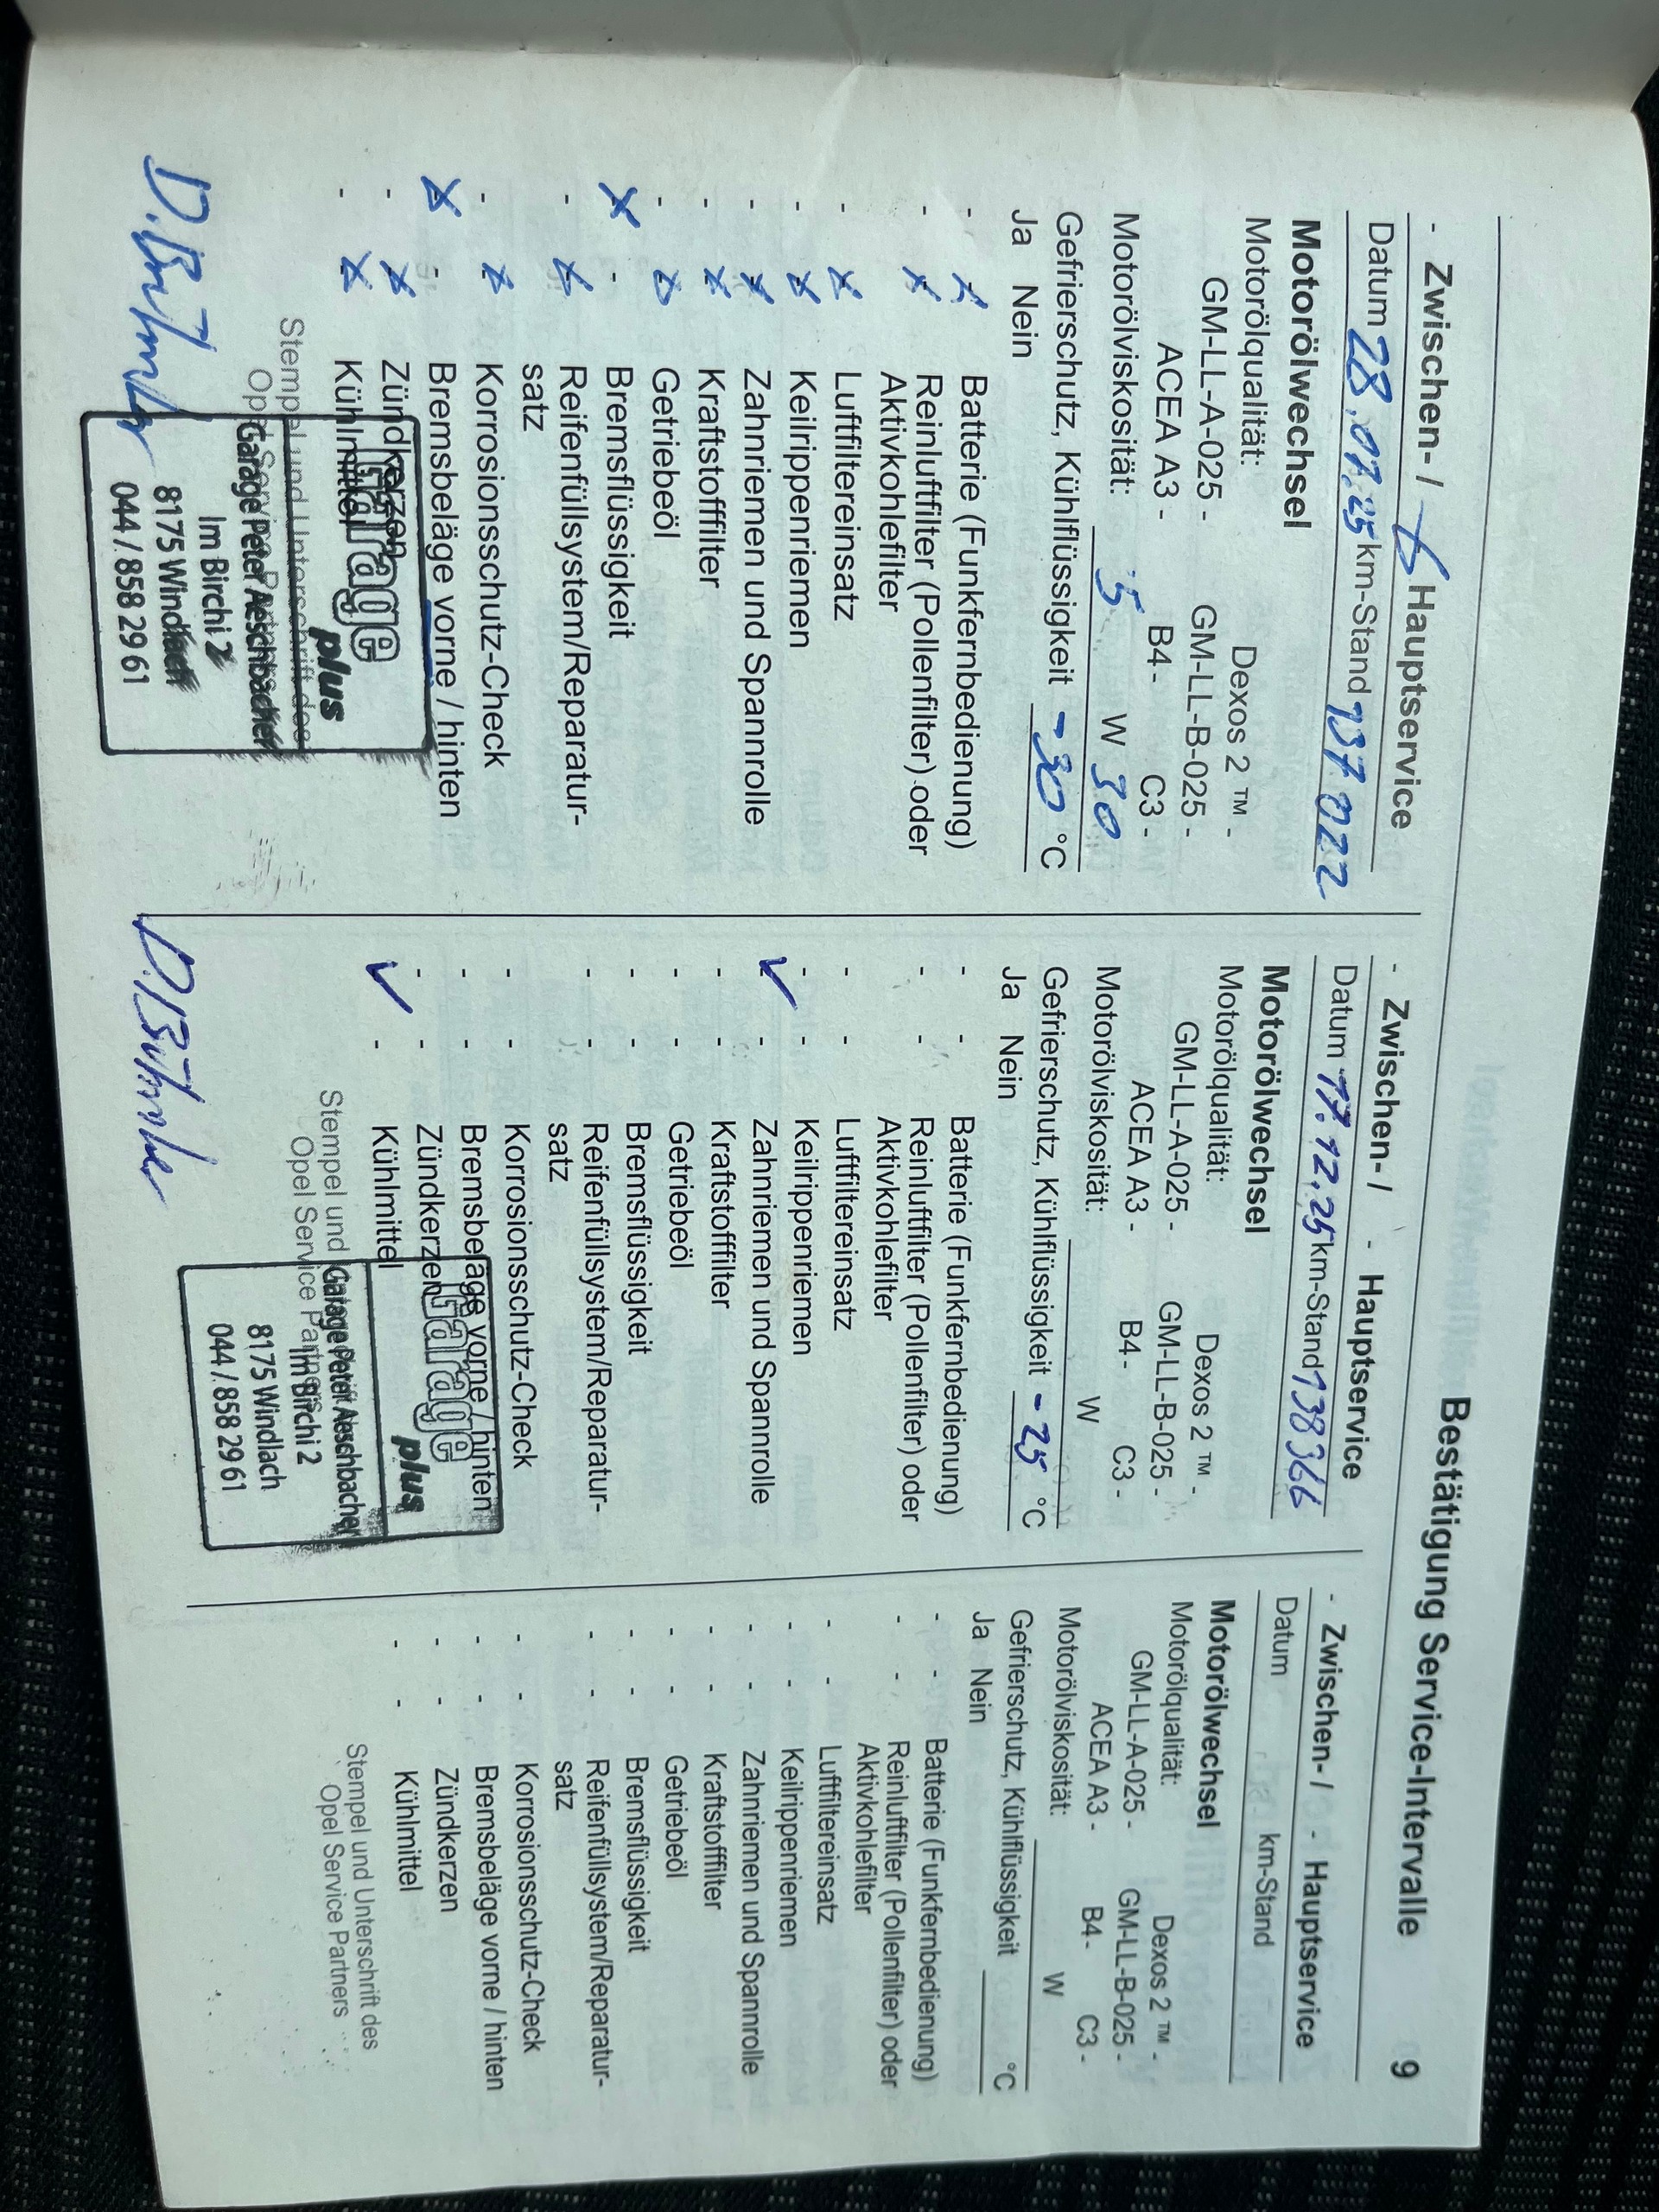 Bestätigung Service-Intervalle 9
- Zwischen- / Hauptservice
Datum 28.07.25 km-Stand 137022
Motorölwechsel
Motorölqualität: Dexos 2 ™ -
GM-LL-A-025 - GM-LL-B-025 -
ACEA A3 - B4- C3 -
Motorölviskosität: 5 W 30
Gefrierschutz, Kühlflüssigkeit -30 °C
Ja Nein
- x Batterie (Funkfernbedienung)
- x Reinluftfilter (Pollenfilter) oder
Aktivkohlefilter
- x Luftfiltereinsatz
- x Keilrippenriemen
- x Zahnriemen und Spannrolle
- x Kraftstofffilter
- x Getriebeöl
x - Bremsflüssigkeit
- x Reifenfüllsystem/Reparatur-
satz
- x Korrosionsschutz-Check
x - Bremsbeläge vorne / hinten
- x Zündkerzen
- x Kühlmittel
Stempel und Unterschrift des
Garage
plus
Garage Peter Aeschbacher
Im Birchi 2
8175 Windlach
044 / 858 29 61
- Zwischen- / - Hauptservice
Datum 17.12.25 km-Stand 138366
Motorölwechsel
Motorölqualität: Dexos 2 ™ -
GM-LL-A-025 - GM-LL-B-025 -
ACEA A3 - B4- C3 -
Motorölviskosität: W
Gefrierschutz, Kühlflüssigkeit -25 °C
Ja Nein
- - Batterie (Funkfernbedienung)
- - Reinluftfilter (Pollenfilter) oder
Aktivkohlefilter
- - Luftfiltereinsatz
- - Keilrippenriemen
✓ - Zahnriemen und Spannrolle
- - Kraftstofffilter
- - Getriebeöl
- - Bremsflüssigkeit
- - Reifenfüllsystem/Reparatur-
satz
- - Korrosionsschutz-Check
- - Bremsbeläge vorne / hinten
- - Zündkerzen
✓ - Kühlmittel
Stempel und
Opel Service Partners
Garage
plus
Garage Peter Aeschbacher
Im Birchi 2
8175 Windlach
044 / 858 29 61
- Zwischen- / - Hauptservice
Datum km-Stand
Motorölwechsel
Motorölqualität: Dexos 2 ™ -
GM-LL-A-025 - GM-LL-B-025 -
ACEA A3 - B4- C3 -
Motorölviskosität: W
Gefrierschutz, Kühlflüssigkeit °C
Ja Nein
- - Batterie (Funkfernbedienung)
- - Reinluftfilter (Pollenfilter) oder
Aktivkohlefilter
- - Luftfiltereinsatz
- - Keilrippenriemen
- - Zahnriemen und Spannrolle
- - Kraftstofffilter
- - Getriebeöl
- - Bremsflüssigkeit
- - Reifenfüllsystem/Reparatur-
satz
- - Korrosionsschutz-Check
- - Bremsbeläge vorne / hinten
- - Zündkerzen
- - Kühlmittel
Stempel und Unterschrift des
Opel Service Partners